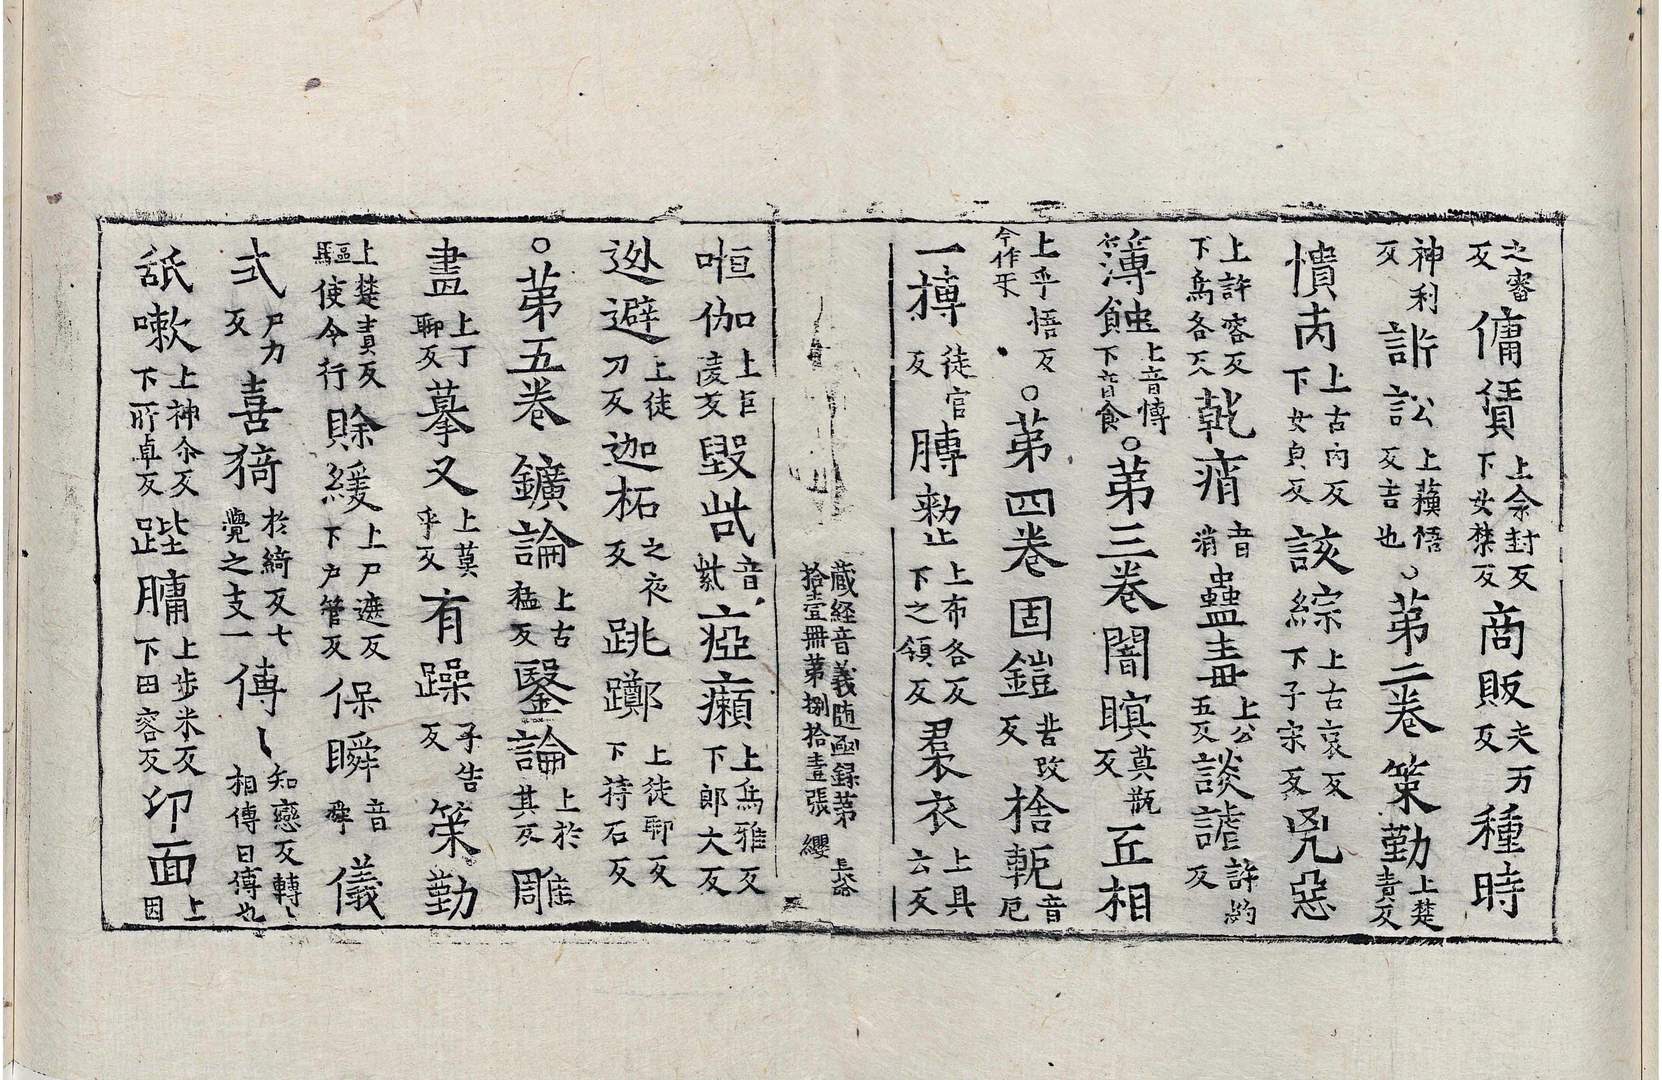 之審反傭賃上余封反下女禁反商販夫万反種時
神利反訢訟上蘓悟反吉也〇第二卷策勤上楚責反
憒丙上古內反下女貞反該綜上古哀反下子宗反兇惡
上許容反下烏各反乾痟音消蠱毒上公五反談謔許約反
簿蝕上音愽下音食〇第三卷闇瞑莫瓶反互相
上乎悟反今作㸦〇第四卷固鎧苦改反捨軛音厄
一摶徒官反膊上布各反下之領反裠衣上具云反
藏経音義随函録第拾壹冊第捌拾壹張纓
㖶伽上巨凌反毀呰音紫瘂癩上烏雅反下郎大反
迯避上徒刀反迦柘之夜反跳躑上徒聊反下持石反
〇第五卷鑛論上古猛反毉論上於其反雕
盡上丁聊反摹又上莫乎反有躁子告反策勤
上楚責反驅使令行賖緩上尸遮反下戶管反保瞬音舜儀
式尸力反喜猗於綺反七覺之支一傳〻知戀反轉〻相傳曰傳也
舐嗽上神尒反下所卓反髀𦟛上步米反下田容反印面上因